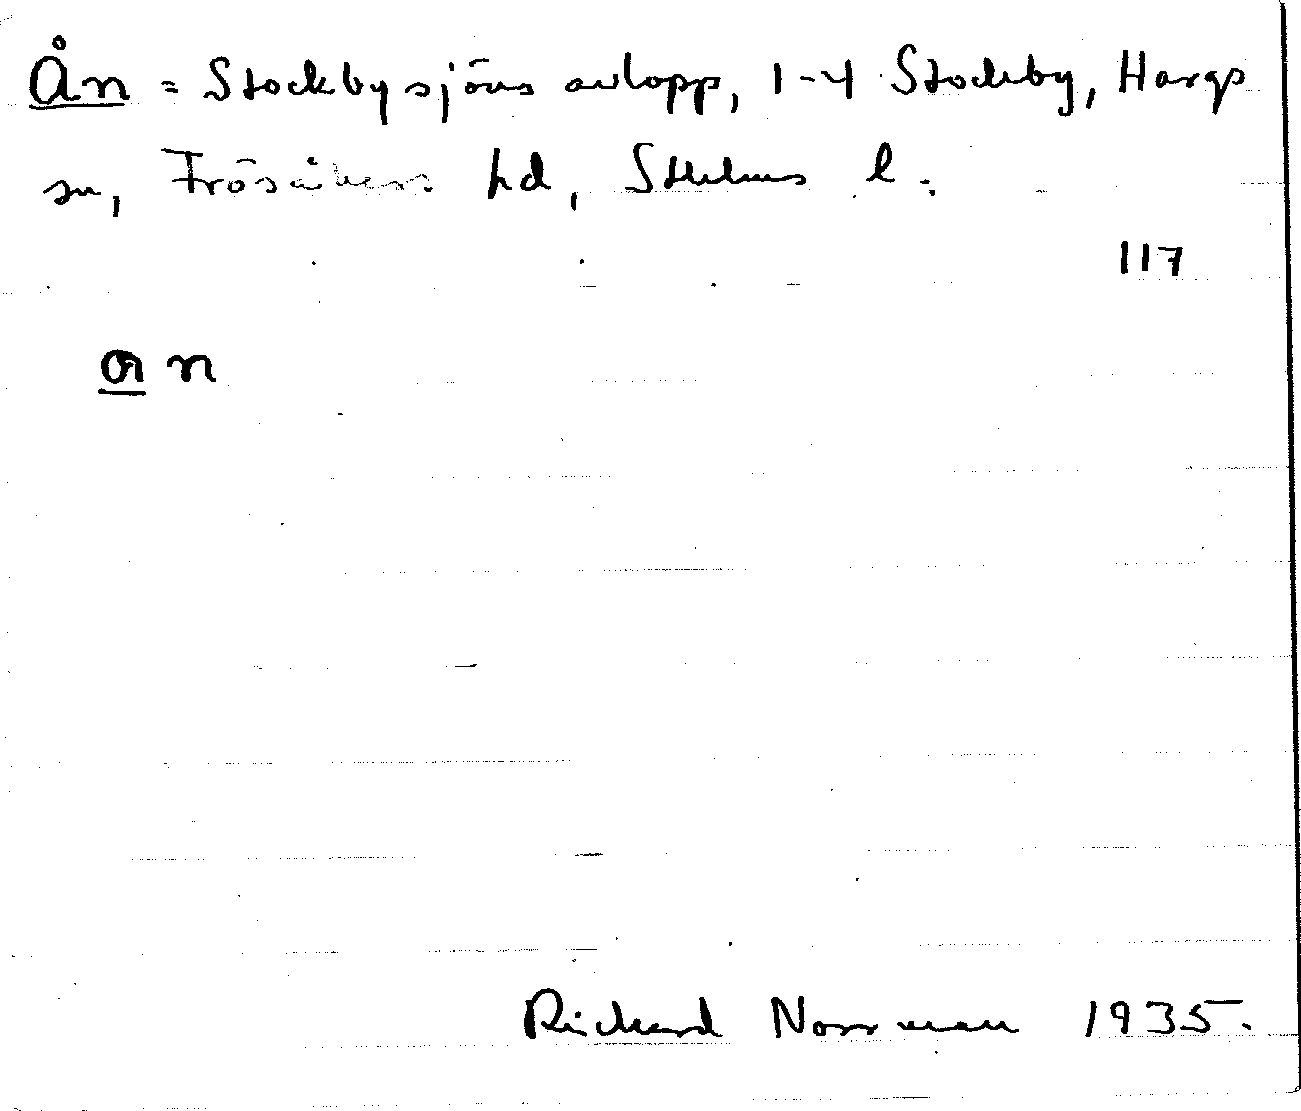 Ån = Stockbysjöns avlopp, 1-4 Stockby, Hargs
sn, Frösåkers hd, Sthlms l.
117
an
Richard Norrman 1935.